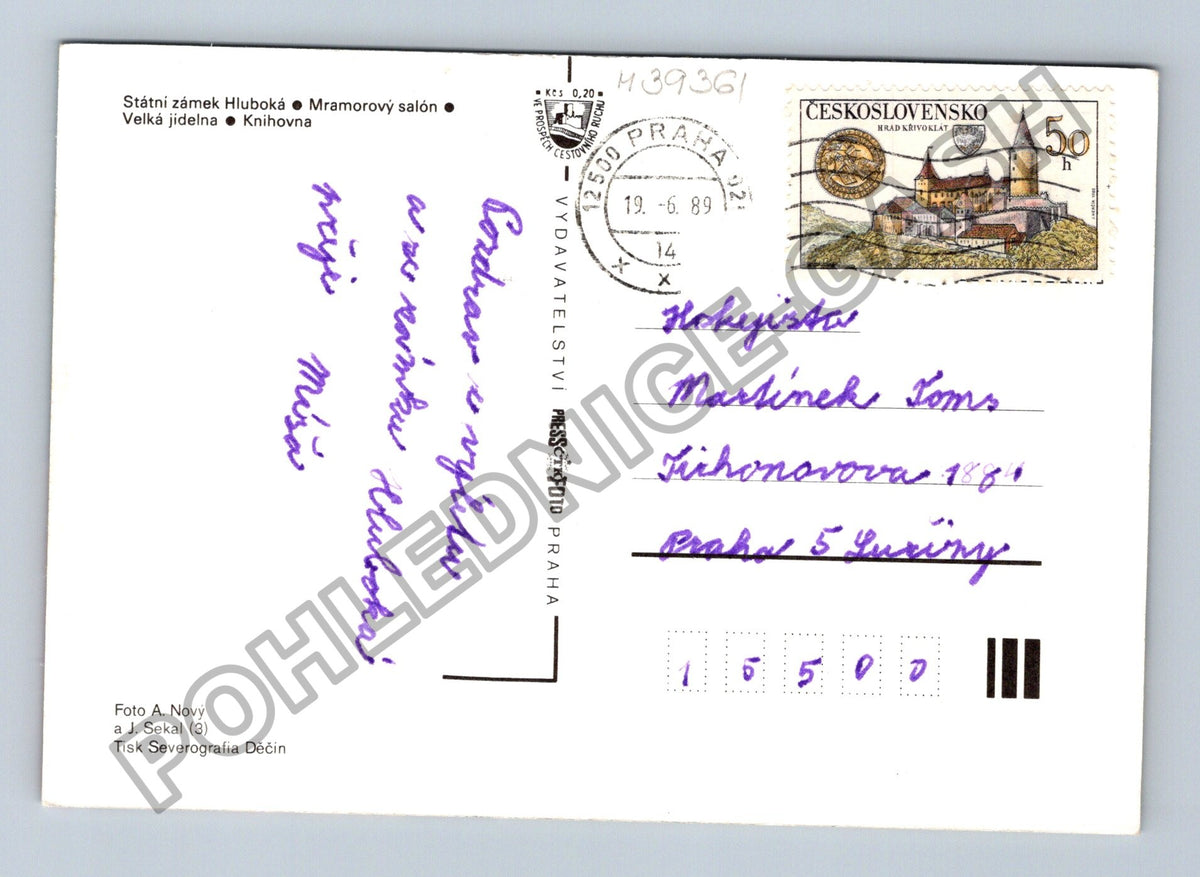 Státní zámek Hluboká ● Mramorový salón ●
Velká jídelna ● Knihovna
Kčs 0,20
VE PROSPĚCH CESTOVNÍHO RUCHU
M39361
12500 PRAHA 02
19. -6. 89
14
ČESKOSLOVENSKO
HRAD KŘIVOKLÁT
50
h
Pozdrav z výletu
a ze zámku Hluboká
přeji
Míša
VYDAVATELSTVÍ PRESSFOTO PRAHA
ČTK
Hokejista
Martínek Toms
1884
Praha 5 Luxiny
15500
Foto A. Nový
a J. Sekal (3)
Tisk Severografia Děčín
POHLEDNICE-GASH